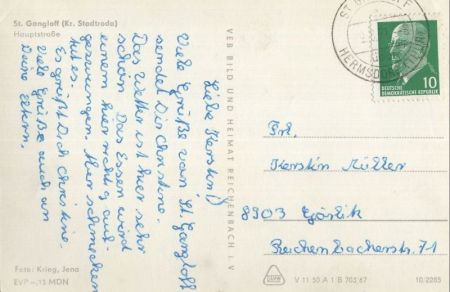 St. Gangloff (Kr. Stadtroda)
Hauptstraße
Liebe Kerstin!
Viele Grüße van St. Gangloff
sendet Dir Christine.
Das Wetter ist hier sehr
schön. Das Essen wird
einem hier nicht auf-
gezwungen. Hier schmecken
tut es.
Es grüßt Dich Christine.
Viele Grüße auch an
Deine Eltern.
Foto: Krieg, Jena
EVP -,15 MDN
VEB BILD UND HEIMAT REICHENBACH I. V
ST. GANGLOFF
HERMSDORF
10
DEUTSCHE
DEMOKRATISCHE REPUBLIK
Frl.
Kerstin Müller
8903 Görlitz
Reichenbacherstr. 71
V 11 50 A 1 B 703/67
10/2285